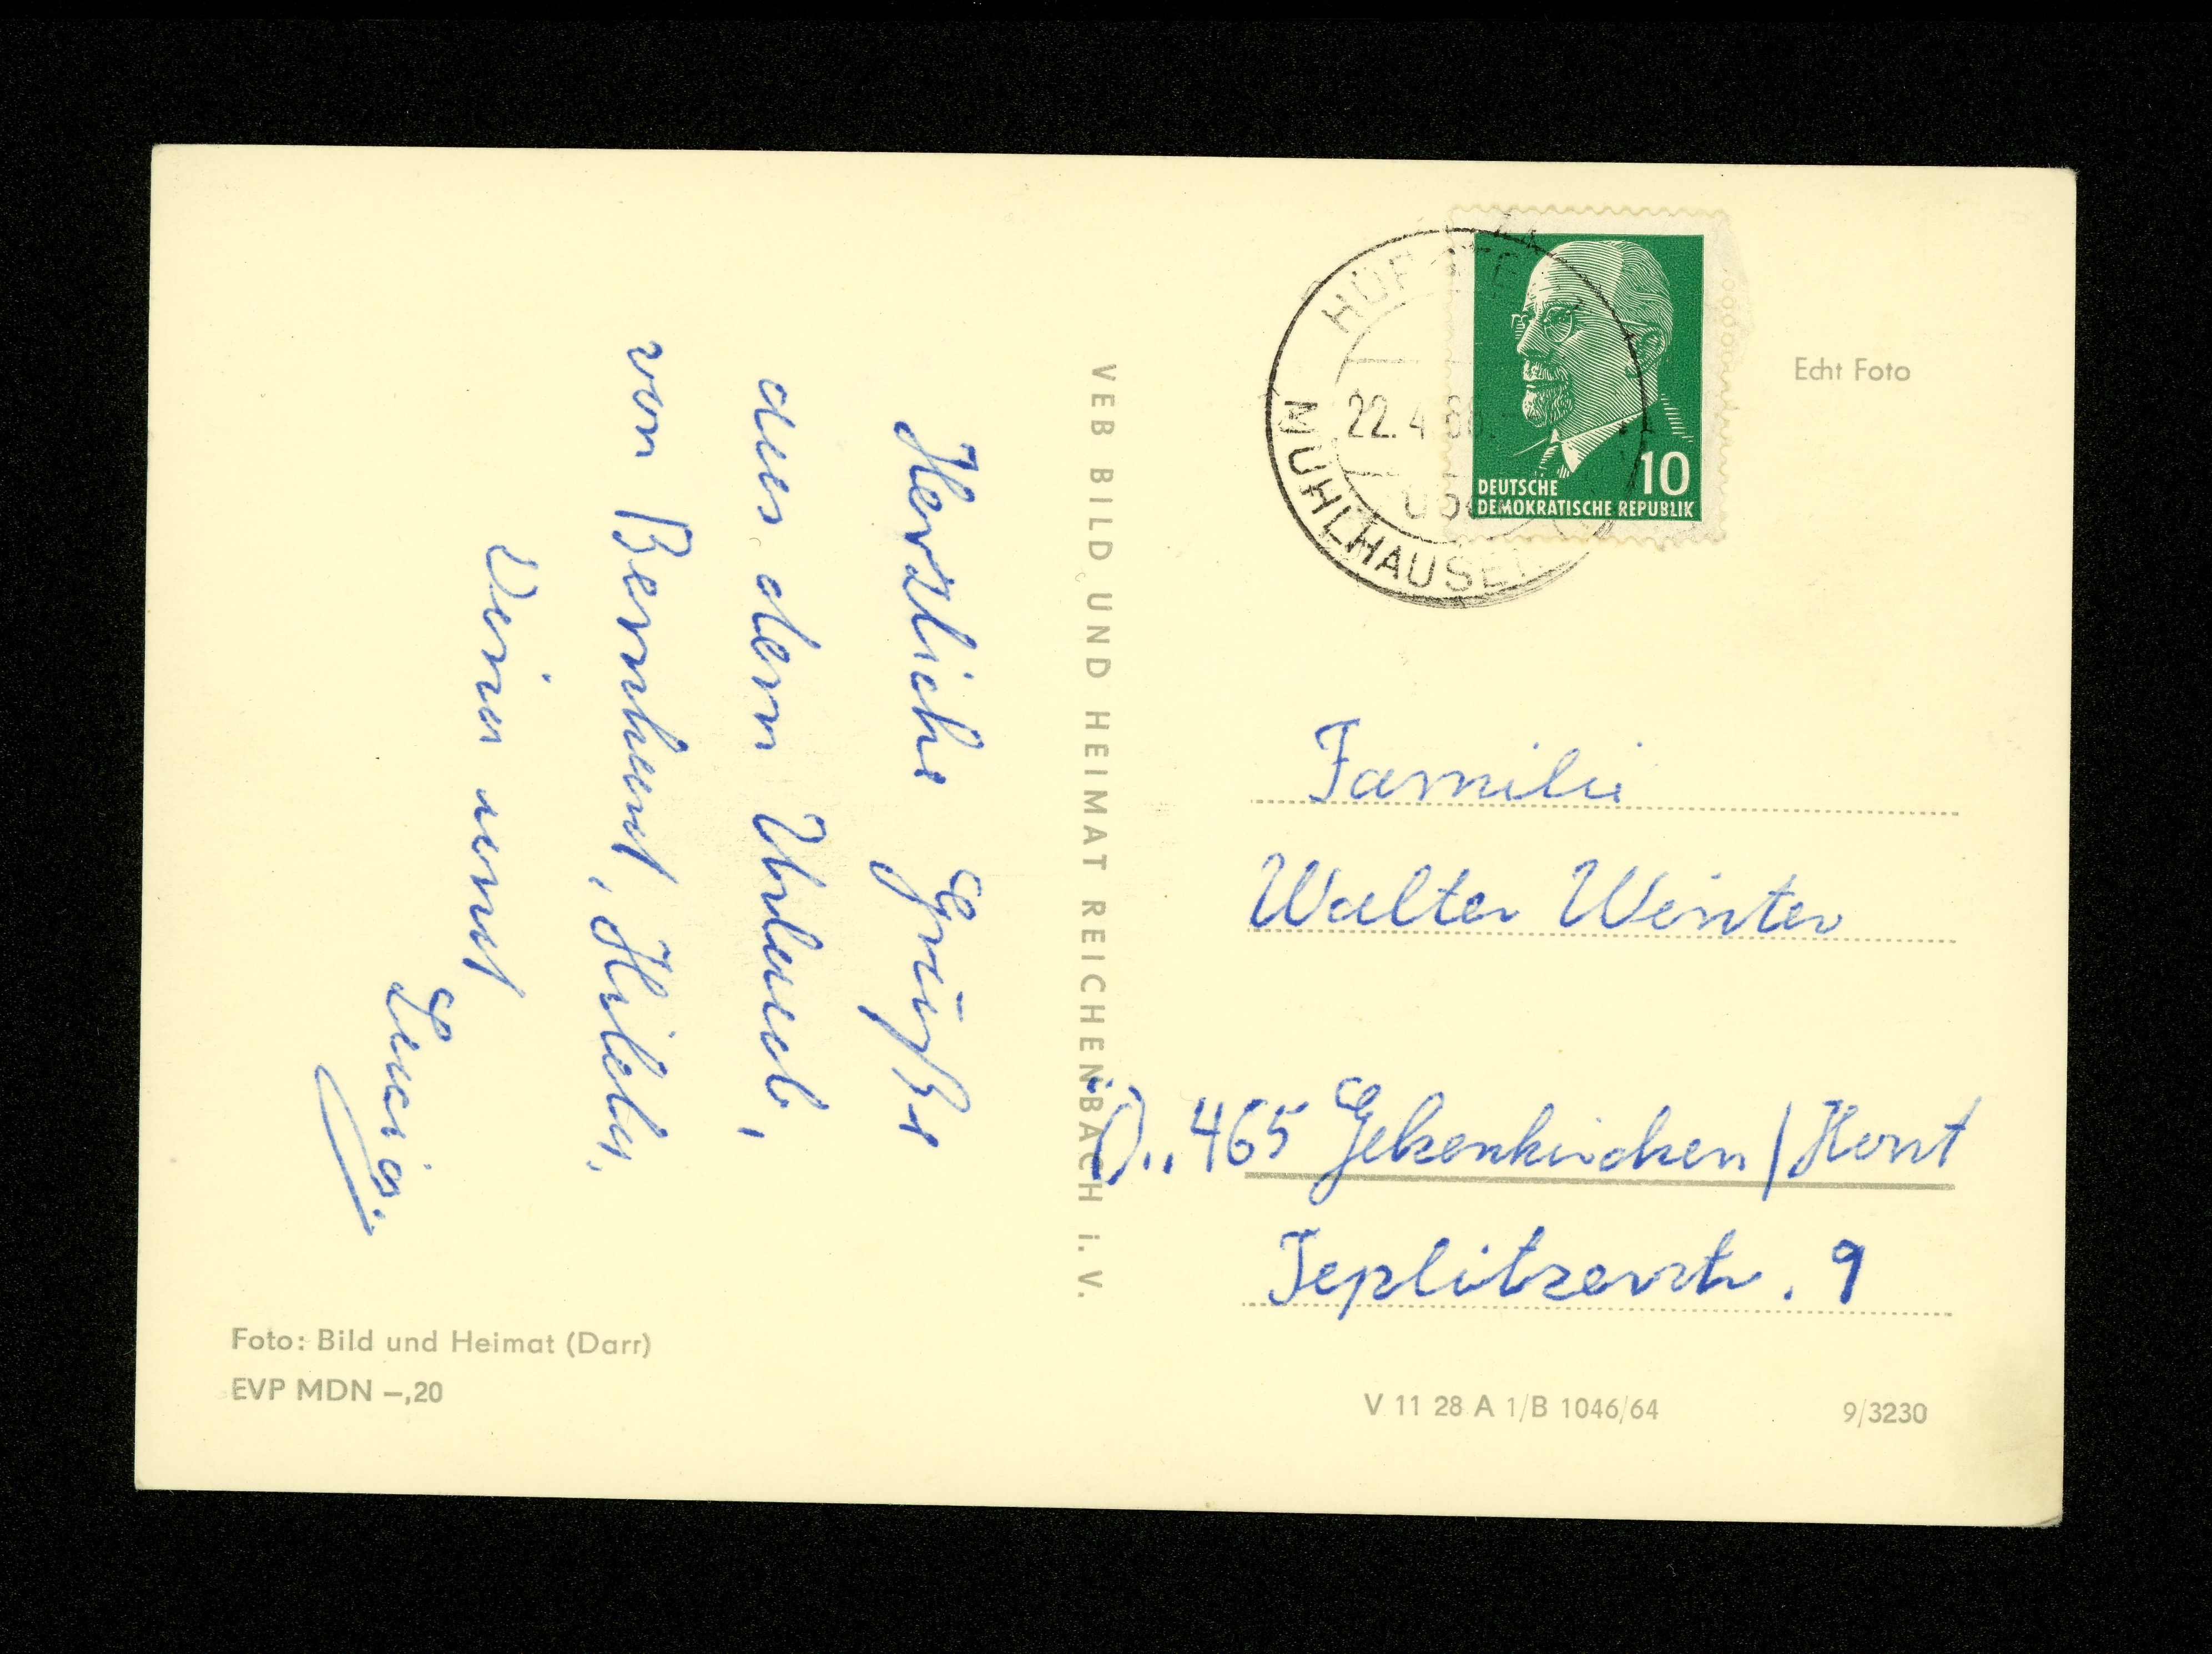 Herzliche Grüße
aus dem Urlaub,
von Bernhard, Hilde,
und
Lucia.
VEB BILD UND HEIMAT REICHENBACH i. V.
22.4
MÜHLHAUSEN
10
DEUTSCHE
DEMOKRATISCHE REPUBLIK
Echt Foto
Familie
Walter Winter
465 Gelsenkirchen / Horst
Teplitzerstr. 9
Foto: Bild und Heimat (Darr)
EVP MDN –,20
V 11 28 A 1/B 1046/64
9/3230